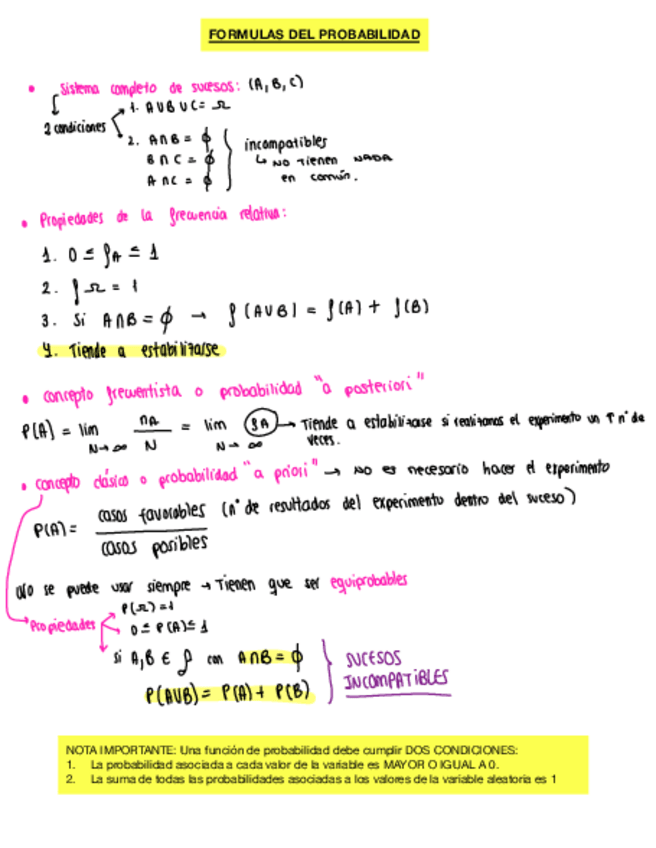 FORMULAS DEL PROBABILIDAD
• Sistema completo de sucesos: (A, B, C)
2 condiciones
1. A∪B∪C = Ω
2. A∩B = ϕ
B∩C = ϕ
A∩C = ϕ
incompatibles
↳ NO Tienen NADA
en común.
• Propiedades de la frecuencia relativa:
1. 0 ≤ fA ≤ 1
2. fΩ = 1
3. Si A∩B = ϕ → f(A∪B) = f(A) + f(B)
4. Tiende a estabilizarse
• concepto frecuentista o probabilidad "a posteriori"
P(A) = lim N→∞ nA/N = lim N→∞ fA → Tiende a estabilizase si realizamos el experimento un ↑ nº de
veces.
• concepto clásico o probabilidad "a priori" → NO es necesario hacer el experimento
P(A) = casos favorables (nº de resultados del experimento dentro del suceso)
casos posibles
No se puede usar siempre → Tienen que ser equiprobables
Propiedades
P(Ω) = 1
0 ≤ P(A) ≤ 1
si A, B ∈ ρ con A∩B = ϕ
P(A∪B) = P(A) + P(B)
SUCESOS
INCOMPATIBLES
NOTA IMPORTANTE: Una función de probabilidad debe cumplir DOS CONDICIONES:
1. La probabilidad asociada a cada valor de la variable es MAYOR O IGUAL A 0.
2. La suma de todas las probabilidades asociadas a los valores de la variable aleatoria es 1